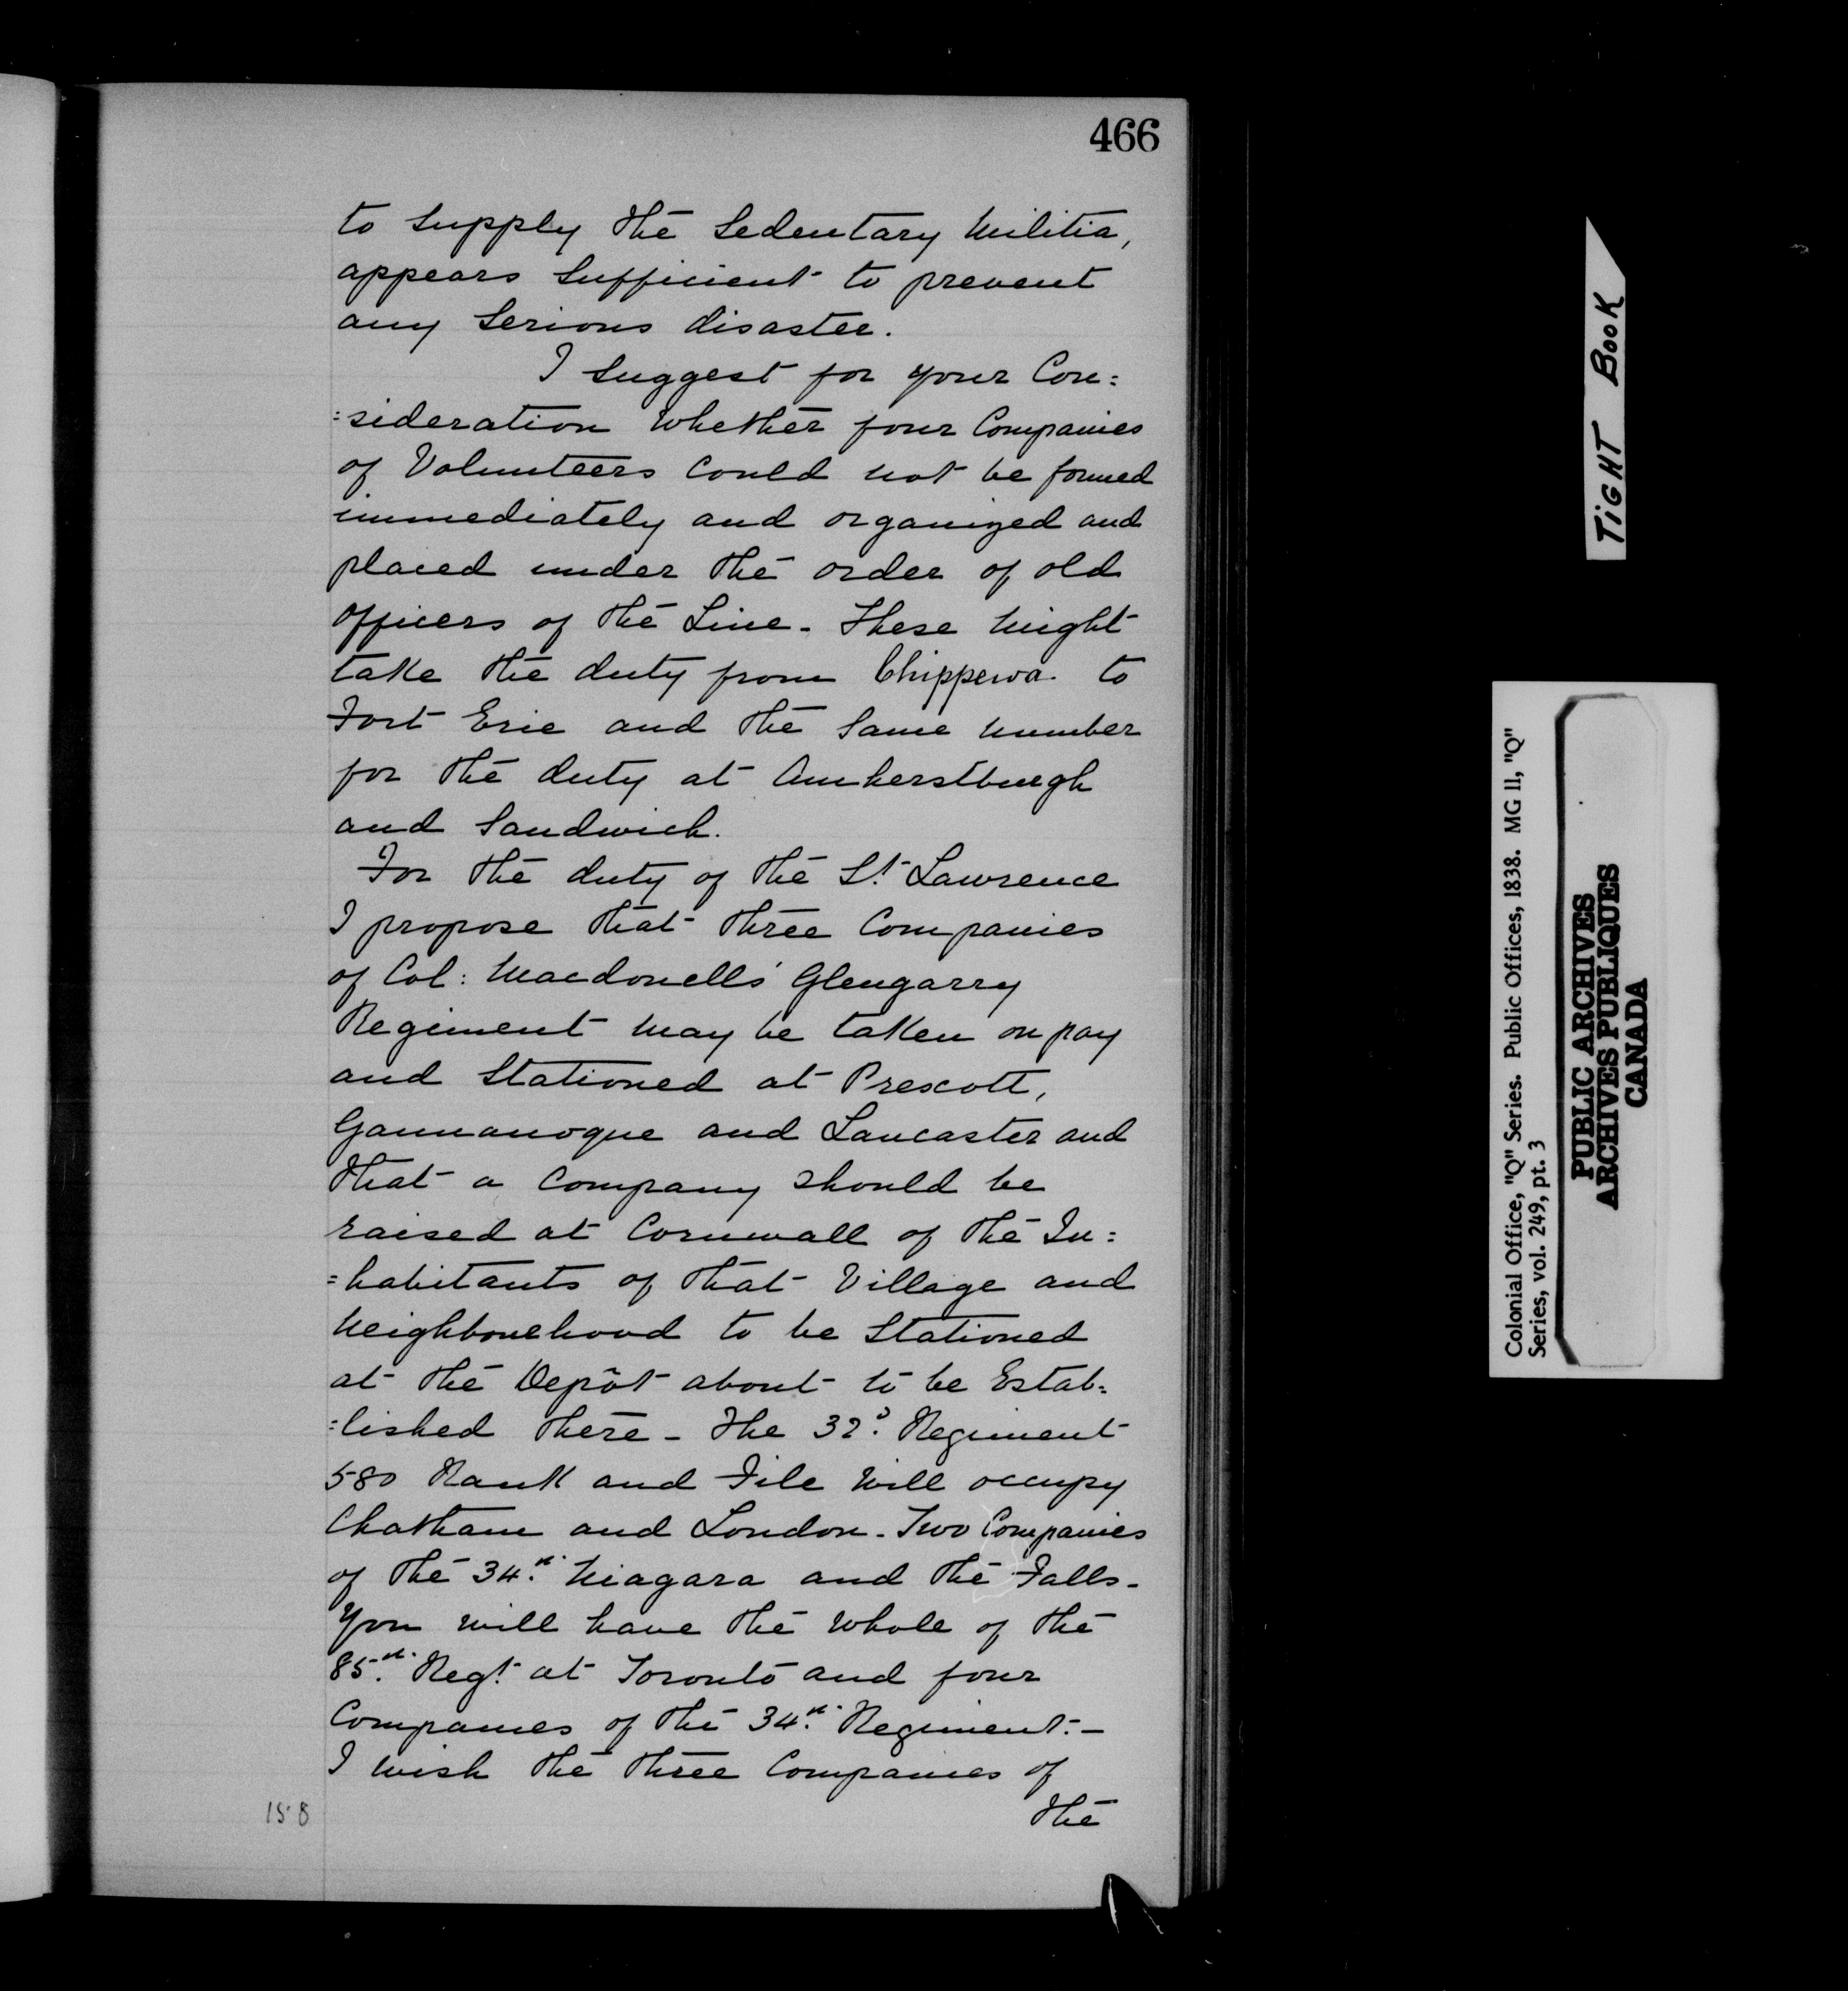 466
to supply the Sedentary Militia,
appears sufficient to prevent
any serious disaster.
I suggest for your Con=
=sideration whether four Companies
of Volunteers could not be formed
immediately and organized and
placed under the order of old
officers of the Line - These might
take the duty from Chippewa to
Fort Erie and the same number
for the duty at Amherstburgh
and Sandwich.
For the duty of the St. Lawrence
I propose that three Companies
of Col: Macdonell's Glengarry
Regiment may be taken on pay
and stationed at Prescott,
Gannanoque and Lancaster and
that a company should be
raised at Cornwall of the In=
=habitants of that Village and
Neighbourhood to be stationed
at the Depôt about to be Estab=
=lished there - The 32d. Regiment
580 Rank and File will occupy
Chatham and London - Two Companies
of the 34th. Niagara and the Falls -
You will have the whole of the
85th. Regt. at Toronto and four
Companies of the 34th. Regiment. -
I wish the three Companies of
the
15 B
TIGHT BOOK
Colonial Office, "Q" Series. Public Offices, 1838. MG 11, "Q"
Series, vol. 249, pt. 3
PUBLIC ARCHIVES
ARCHIVES PUBLIQUES
CANADA